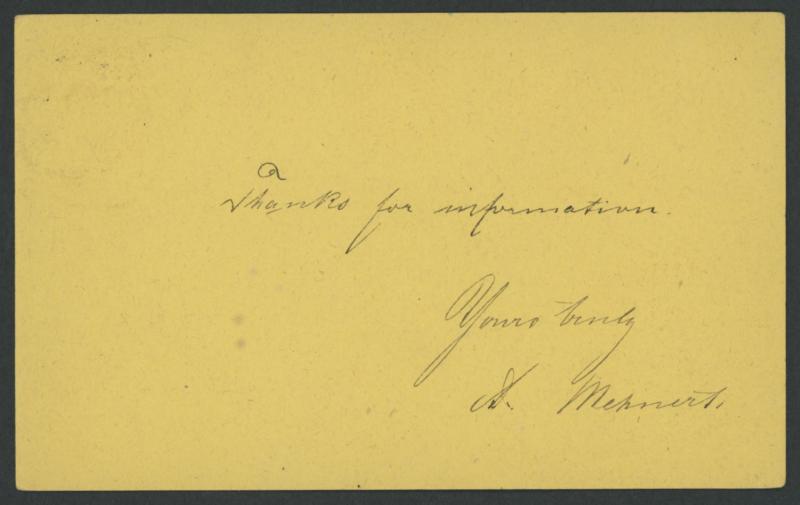 Thanks for information.
Yours truly
A. Mehnert.